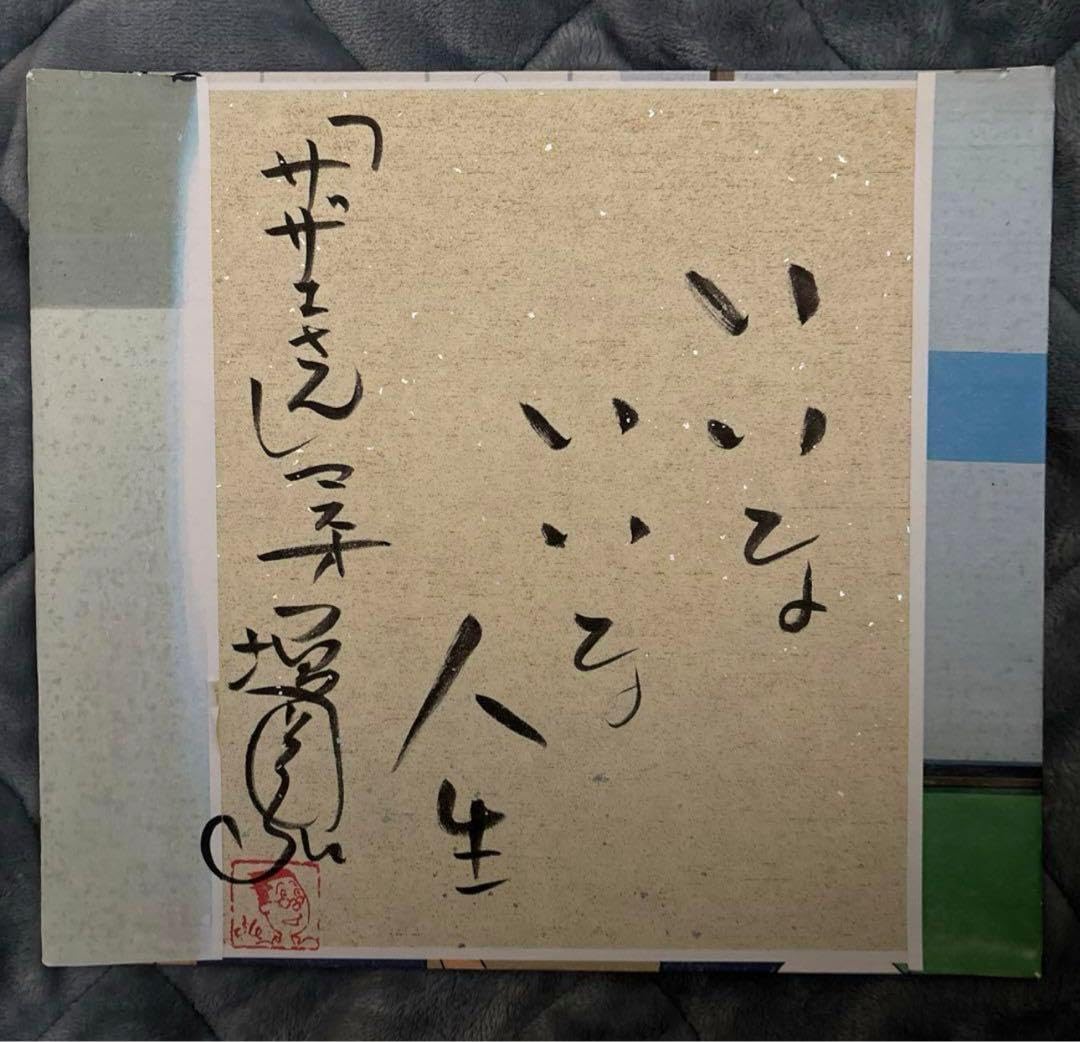 いいな
いいな
人生
「サザエさん」マスオ 増岡弘